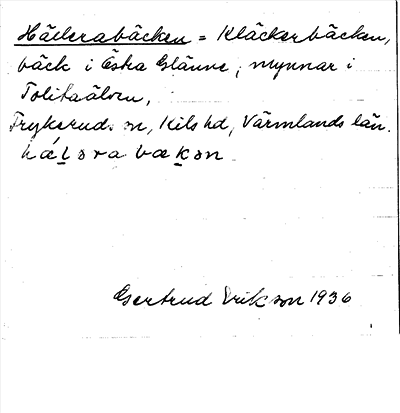 Hällerabäcken = Kläckerbäcken,
bäck i Östra Glänne, mynnar i
Tolitaälven,
Frykerud sn, Kils hd, Värmlands län.
Gertrud Erikson 1936